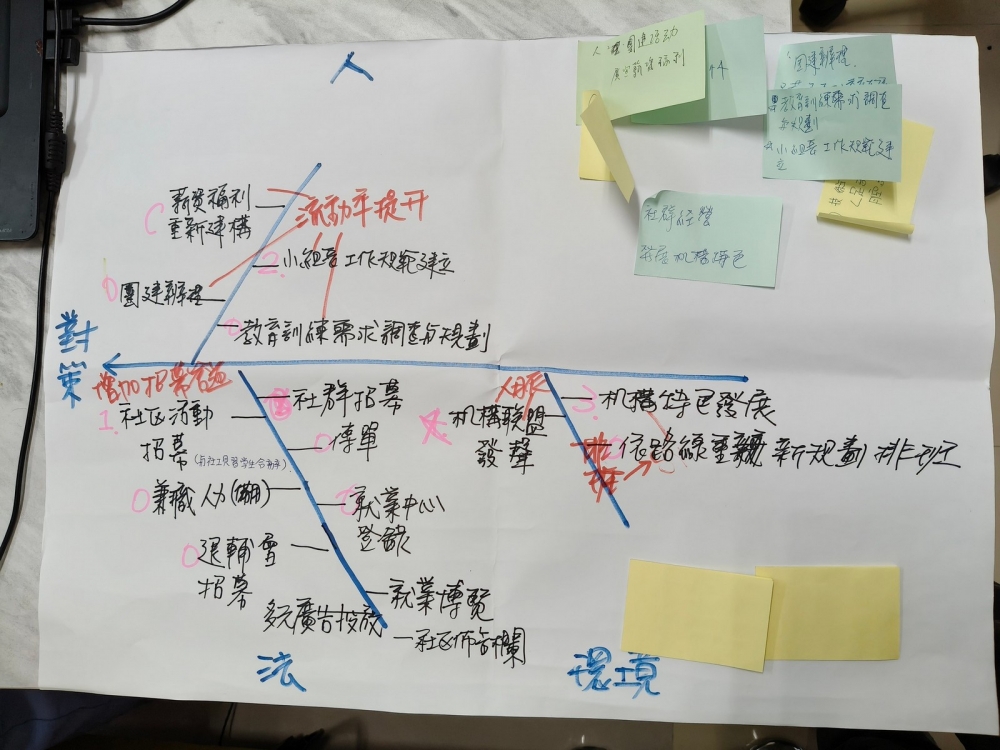 人
人
團建活动
薪資福利
44
團建辦理
教育訓練需求調查
與規劃
小組長工作規範建
立
社群經營
發展机構特色
薪資福利
重新建構
C
流動率提升
2.
小組長工作規範建立
團建辦理
教育訓練需求調查与規劃
對策
增加招募管道
1.
社区活動
招募
社群招募
傳單
0
兼職人力
就業中心
登錄
0
退輔會
招募
就業博覽
多元廣告投放
社区佈告欄
法
人脈
机構联盟
發聲
3.
机構特色發展
排班
依路線重新規劃排班
環境